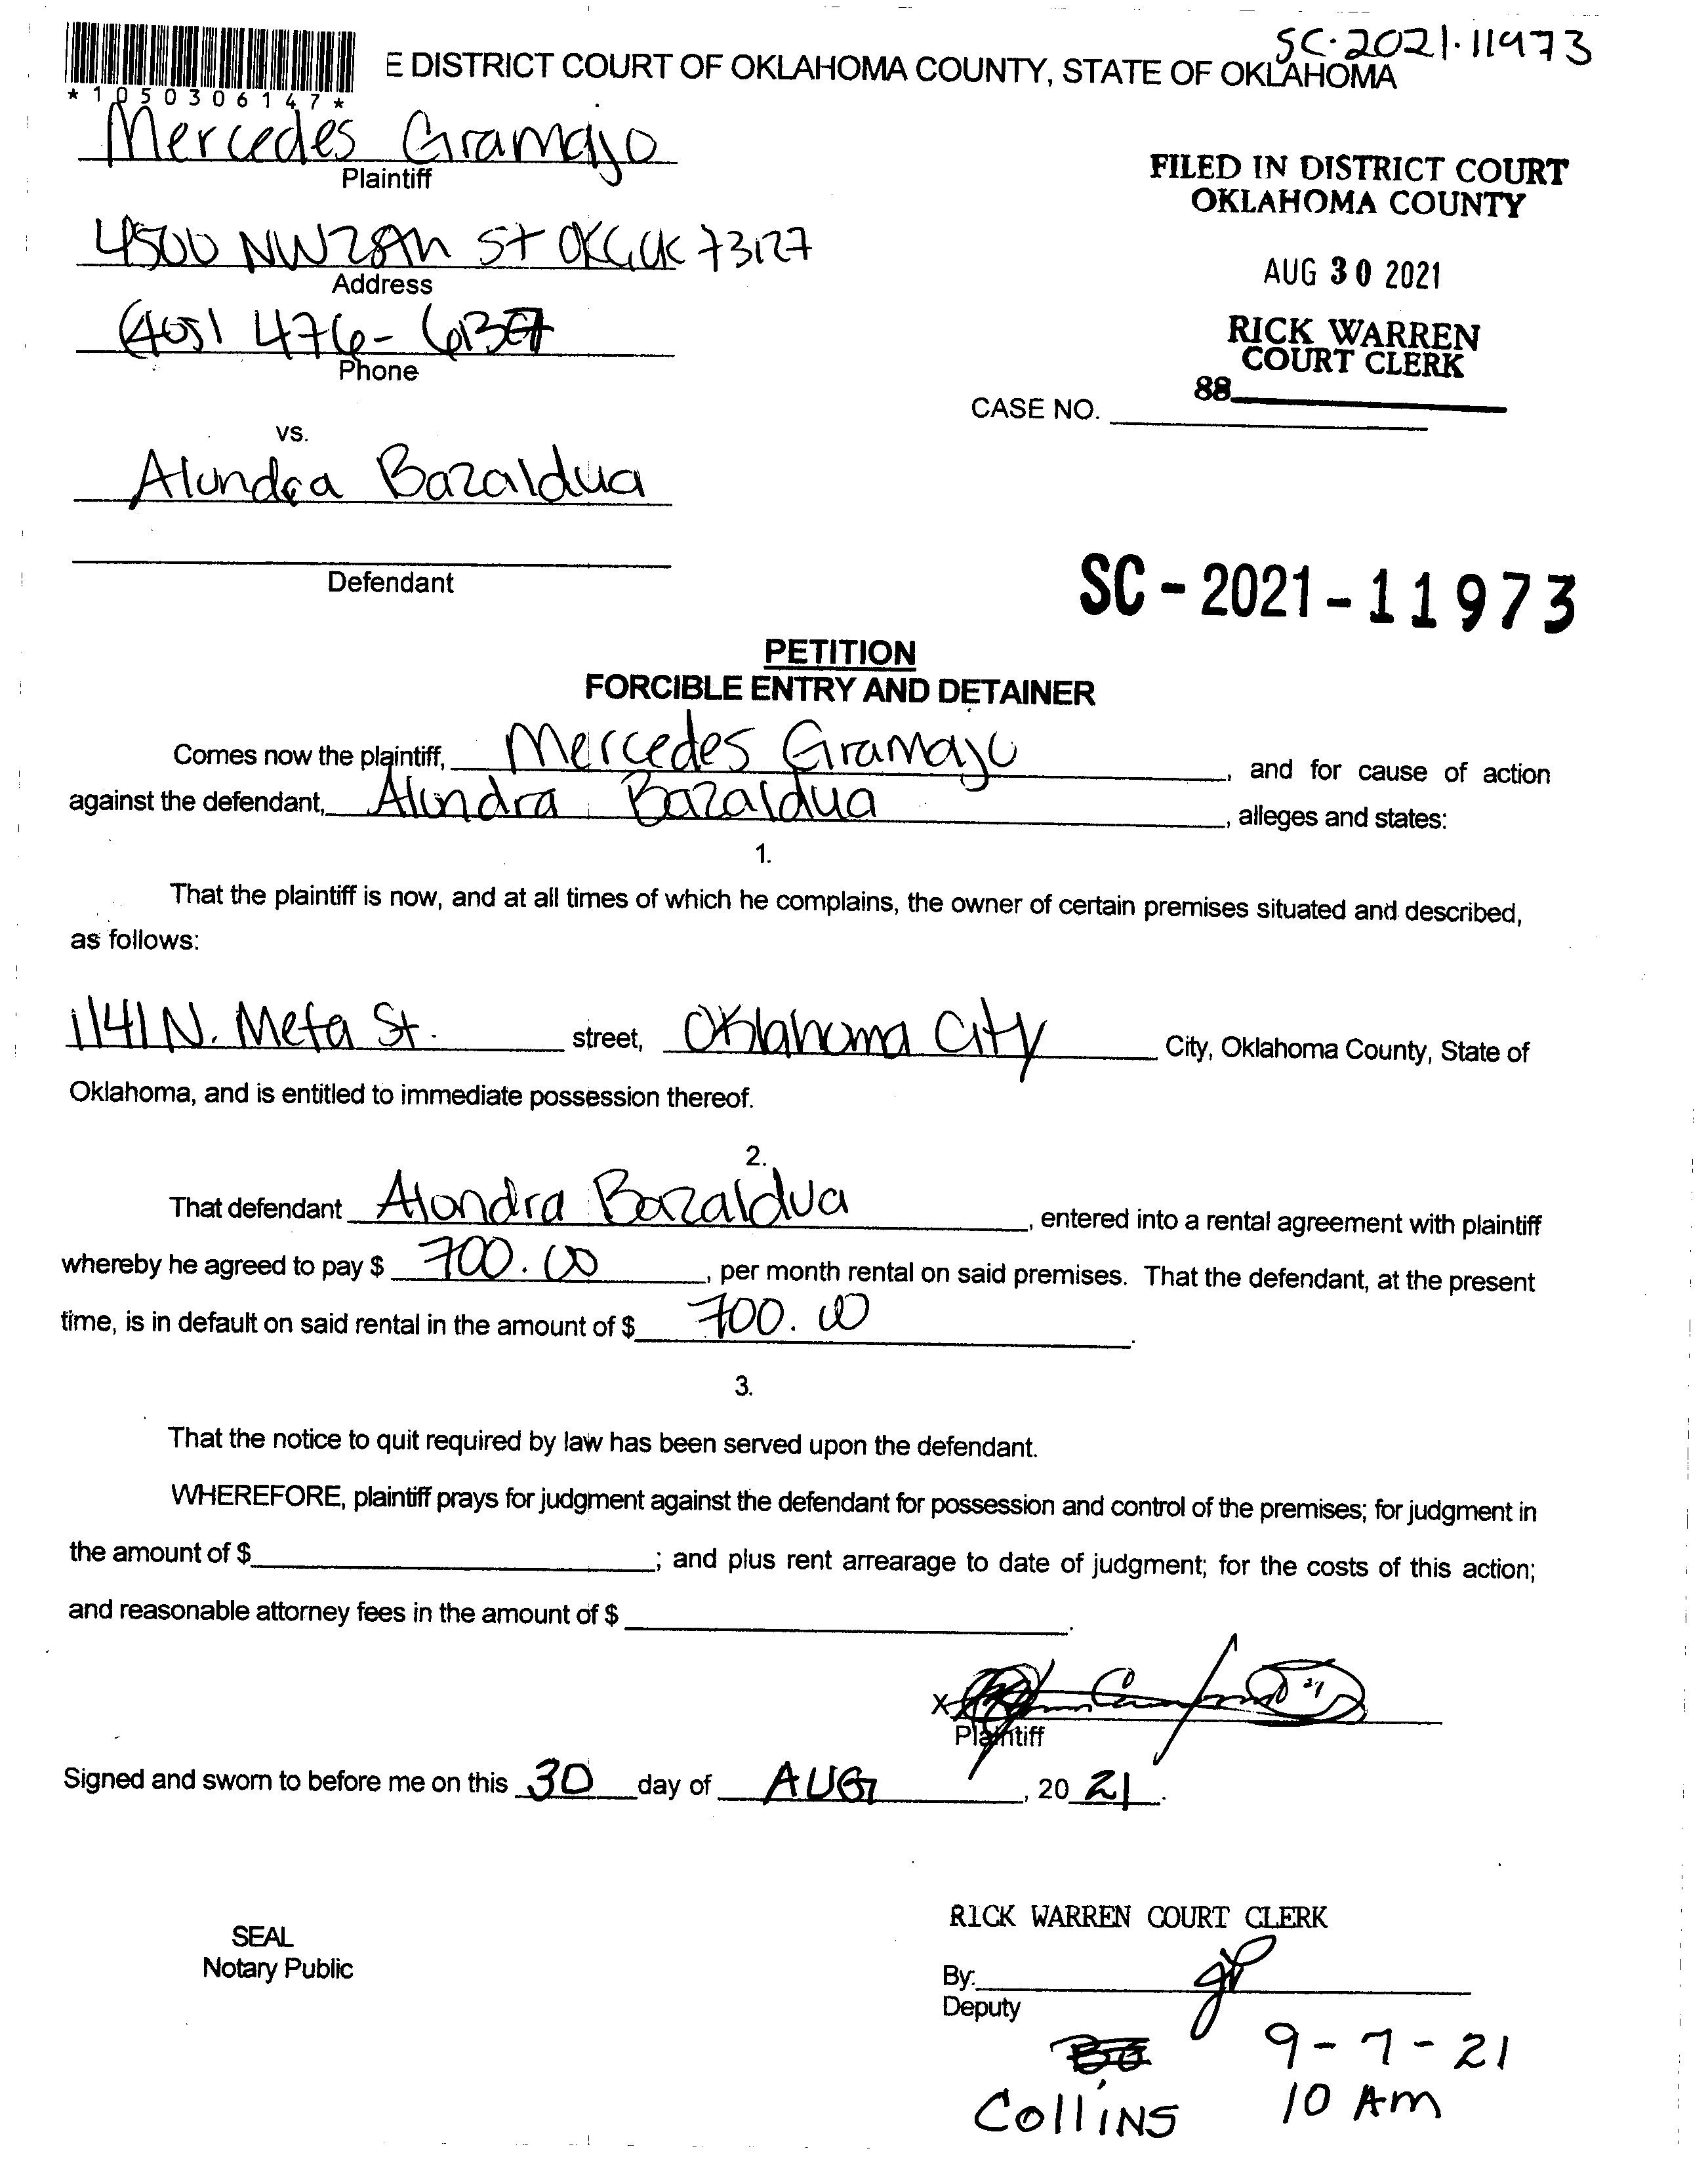 SC-2021-11973
*1050306147*
E DISTRICT COURT OF OKLAHOMA COUNTY, STATE OF OKLAHOMA
Mercedes Gramajo
Plaintiff
FILED IN DISTRICT COURT
OKLAHOMA COUNTY
4500 NW 28th St OKC, OK 73127
Address
AUG 30 2021
(405) 476-
Phone
RICK WARREN
COURT CLERK
88
CASE NO.
vs.
Alondra Bazaldua
Defendant
SC-2021-11973
PETITION
FORCIBLE ENTRY AND DETAINER
Comes now the plaintiff, Mercedes Gramajo, and for cause of action
against the defendant, Alondra Bazaldua, alleges and states:
1.
That the plaintiff is now, and at all times of which he complains, the owner of certain premises situated and described,
as follows:
1141 N. Meta St. street, Oklahoma City City, Oklahoma County, State of
Oklahoma, and is entitled to immediate possession thereof.
2.
That defendant Alondra Bazaldua, entered into a rental agreement with plaintiff
whereby he agreed to pay $ 700.00, per month rental on said premises. That the defendant, at the present
time, is in default on said rental in the amount of $ 700.00.
3.
That the notice to quit required by law has been served upon the defendant.
WHEREFORE, plaintiff prays for judgment against the defendant for possession and control of the premises; for judgment in
the amount of $ ; and plus rent arrearage to date of judgment; for the costs of this action;
and reasonable attorney fees in the amount of $ .
X
Plaintiff
Signed and sworn to before me on this 30 day of AUG, 20 21.
RICK WARREN COURT CLERK
SEAL
Notary Public
By:
Deputy
9-7-21
Collins 10 Am